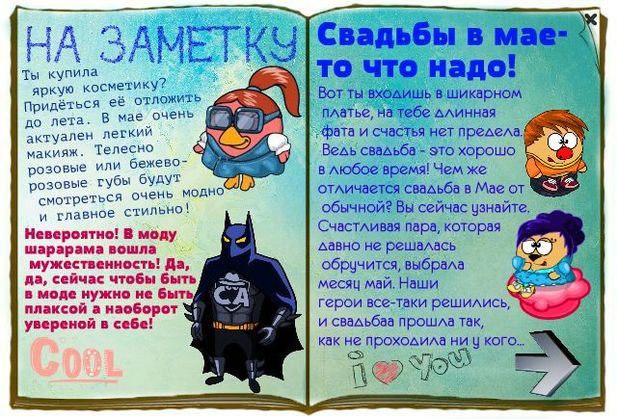 НА ЗАМЕТКУ
Ты купила
яркую косметику?
Придёться её отложить
до лета. В мае очень
актуален легкий
макияж. Телесно
розовые или бежево-
розовые губы будут
смотреться очень модно
и главное стильно!
Невероятно! В моду
шарарама вошла
мужественность! Да,
да, сейчас чтобы быть
в моде нужно не быть
плаксой а наоборот
увереной в себе!
COOL
CA
Свадьбы в мае-
то что надо!
Вот ты входишь в шикарном
платье, на тебе длинная
фата и счастья нет предела.
Ведь свадьба - это хорошо
в любое время! Чем же
отличается свадьба в Мае от
обычной? Вы сейчас узнайте.
Счастливая пара, которая
давно не решалась
обручится, выбрала
месяц май. Наши
герои все-таки решились,
и свадьбаа прошла так,
как не проходила ни у кого...
i ♥ YoU